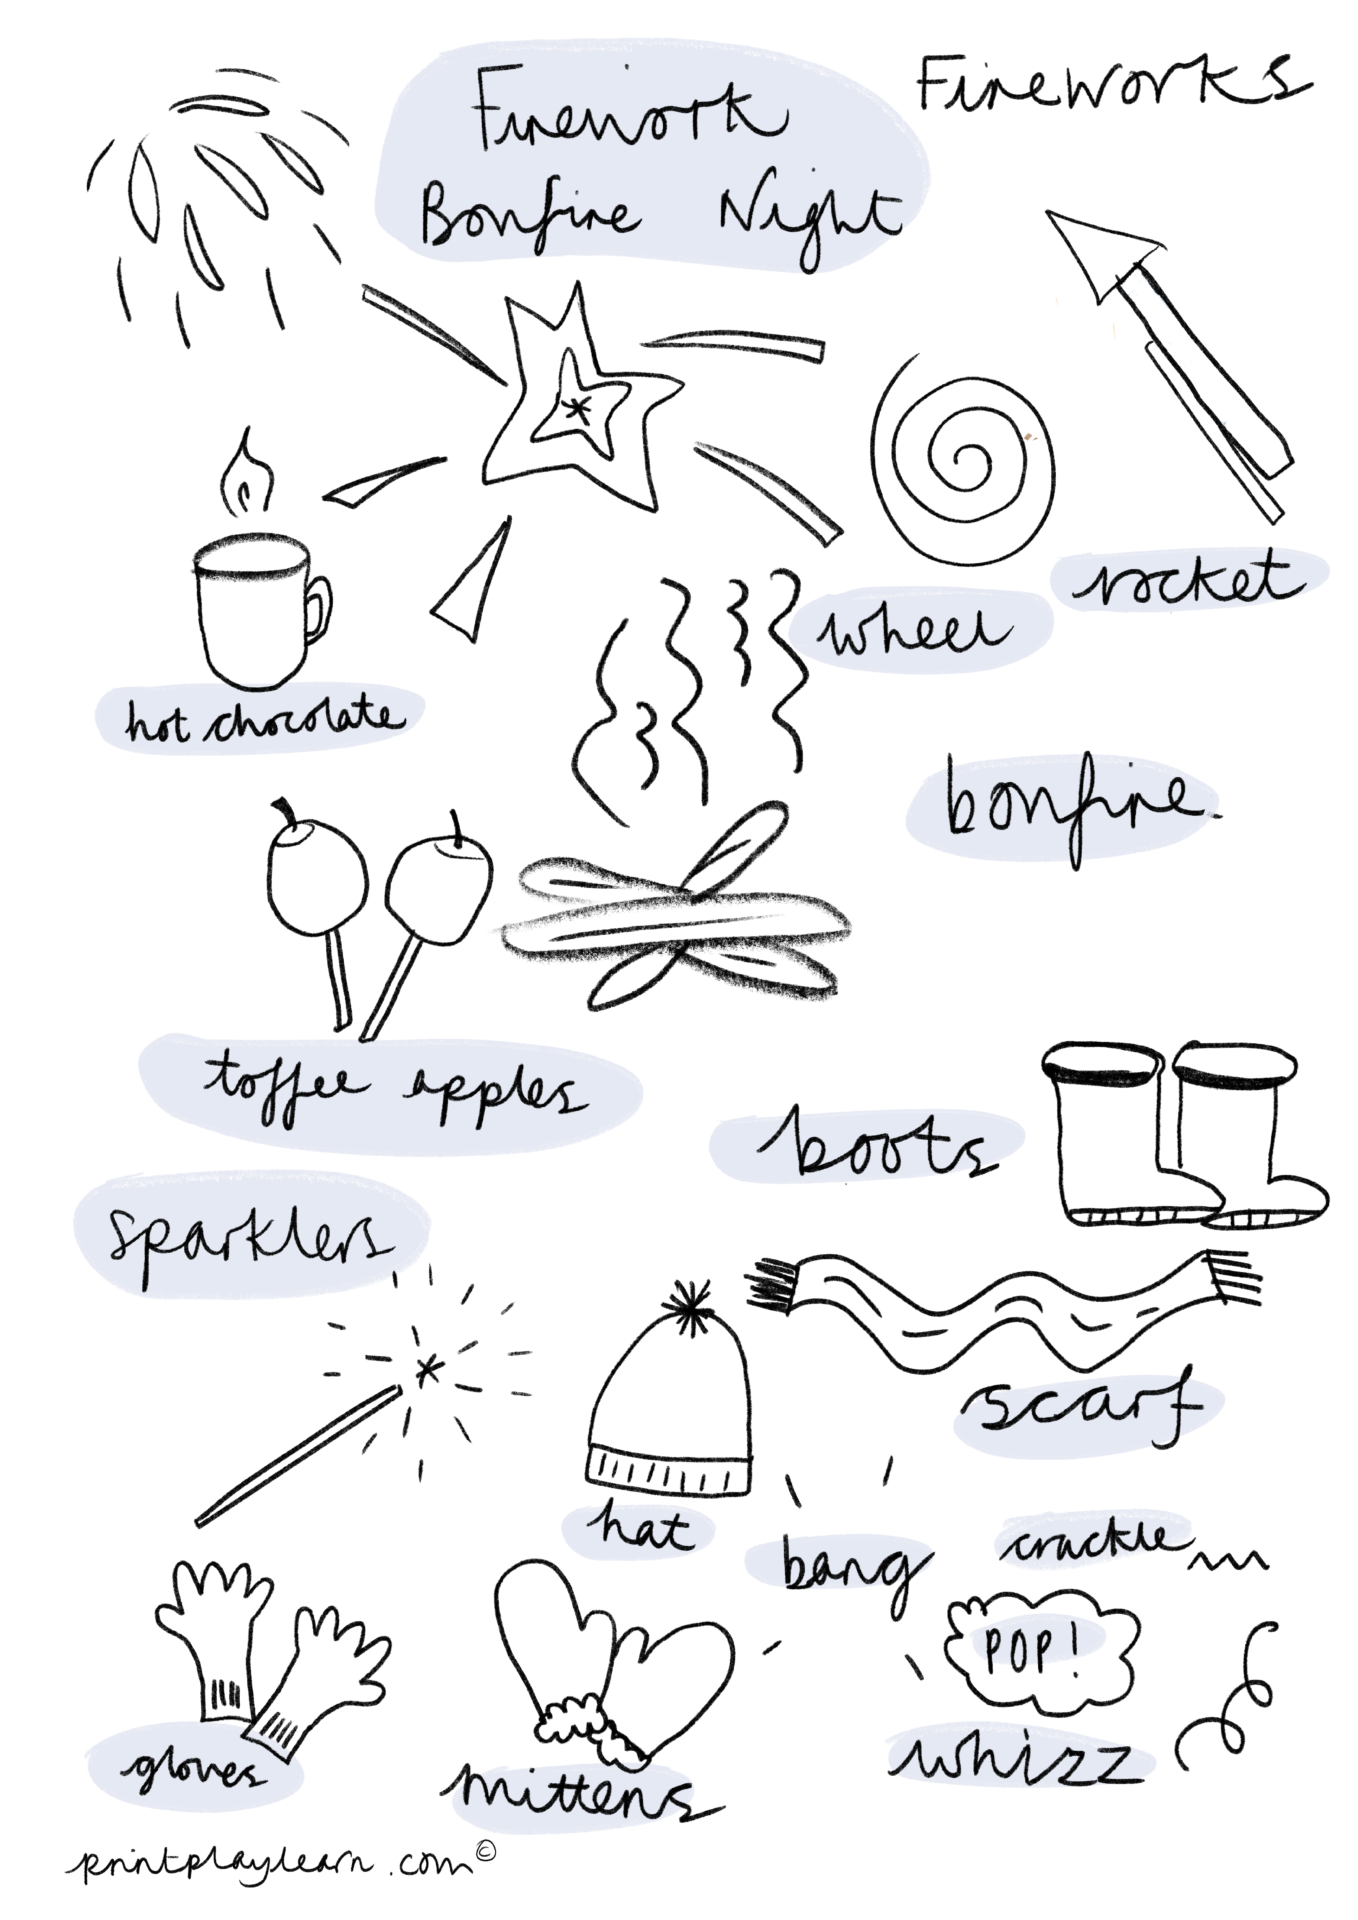 Firework
Bonfire Night
Fireworks
rocket
wheel
hot chocolate
bonfire
toffee apples
boots
sparklers
scarf
hat
bang
crackle
POP!
whizz
gloves
mittens
printplaylearn.com©